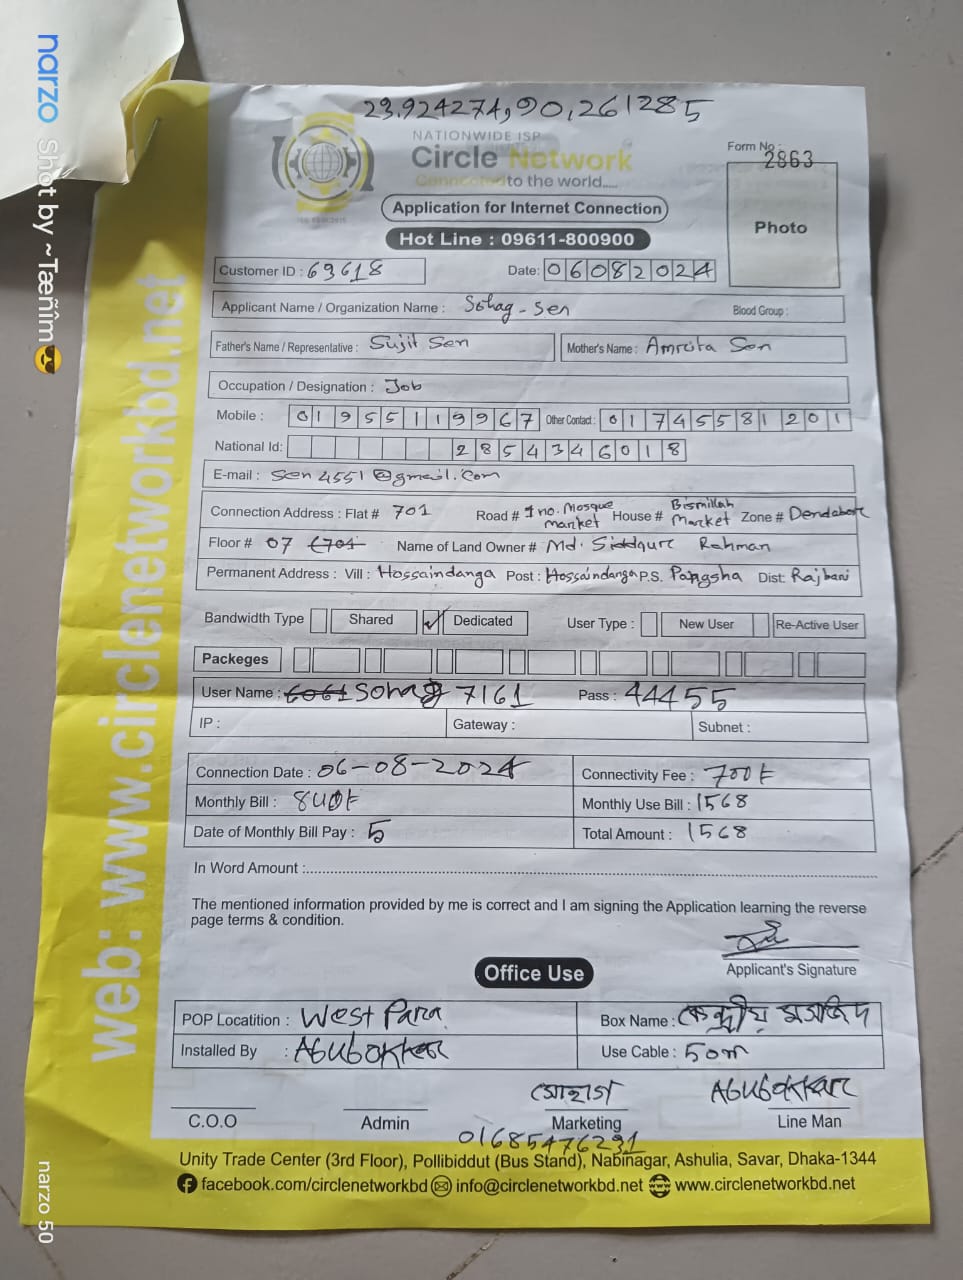 23.924274,90,261285
NATIONWIDE ISP
Circle Network
Connected to the world.....
Form No : 2863
Photo
Application for Internet Connection
Hot Line : 09611-800900
Customer ID : 69618 Date: 06082024
Applicant Name / Organization Name : Sohag-Sen Blood Group :
Father's Name / Representative : Sujit Sen Mother's Name : Amrita Sen
Occupation / Designation : Job
Mobile : 01955119967 Other Contact : 01745581201
National Id: 2854346018
E-mail : Sen4551@gmail.com
Connection Address : Flat # 701 Road # 1 no. Mosque market House # Bismillah Market Zone # Dendabor
Floor # 07 Name of Land Owner # Md. Siddqure Rahman
Permanent Address : Vill : Hossaindanga Post : Hossaindanga P.S. Pangsha Dist: Rajbari
Bandwidth Type Shared ✓ Dedicated User Type : New User Re-Active User
Packeges
User Name : Sohag 7161 Pass : 44455
IP : Gateway : Subnet :
Connection Date : 06-08-2024 Connectivity Fee : 700t
Monthly Bill : Monthly Use Bill : 1568
Date of Monthly Bill Pay : 5 Total Amount : 1568
In Word Amount :
The mentioned information provided by me is correct and I am signing the Application learning the reverse
page terms & condition.
Applicant's Signature
Office Use
POP Locatition : West Para Box Name : কেন্দ্রীয় মসজিদ
Installed By : Abubokkar Use Cable : 50m
C.O.O Admin সোহাগ Marketing Abubokkar Line Man
01685476231
Unity Trade Center (3rd Floor), Pollibiddut (Bus Stand), Nabinagar, Ashulia, Savar, Dhaka-1344
facebook.com/circlenetworkbd info@circlenetworkbd.net www.circlenetworkbd.net
web: www.circlenetworkbd.net
narzo Shot by ~Tæñîm😎
narzo 50